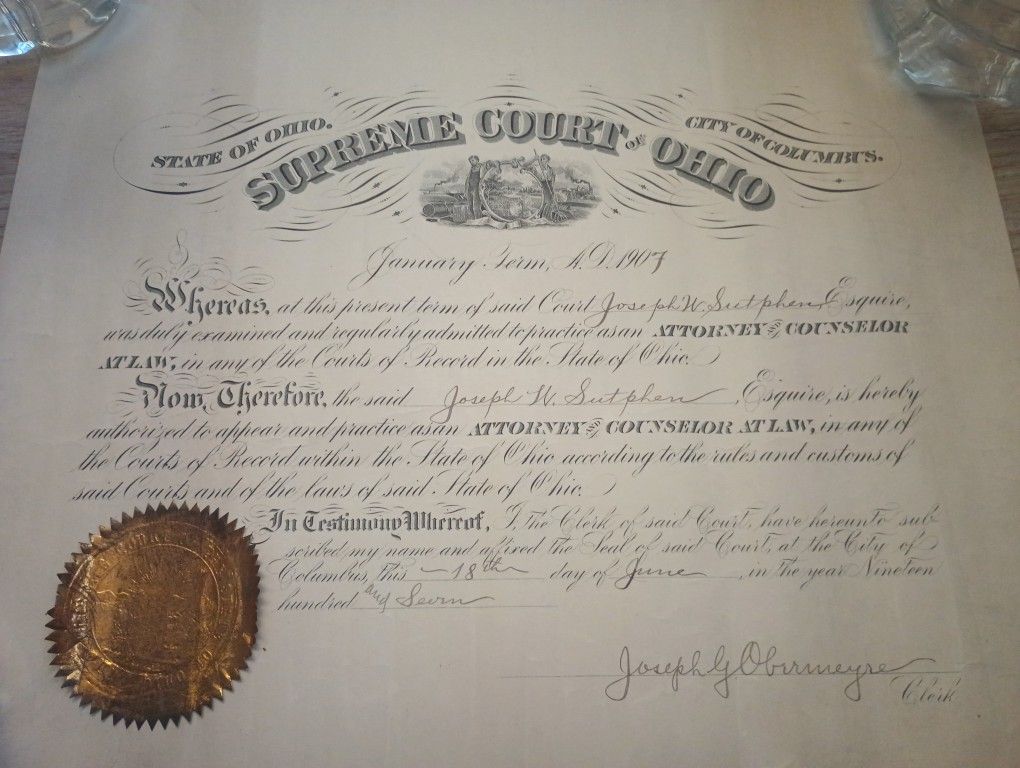 STATE OF OHIO.
SUPREME COURT OF OHIO
CITY OF COLUMBUS.
January Term, A.D. 1907
Whereas, at this present term of said Court Joseph W. Sutphen, Esquire,
was duly examined and regularly admitted to practice as an ATTORNEY and COUNSELOR
AT LAW, in any of the Courts of Record in the State of Ohio.
Now, Therefore, the said Joseph W. Sutphen, Esquire, is hereby
authorized to appear and practice as an ATTORNEY and COUNSELOR AT LAW, in any of
the Courts of Record within the State of Ohio according to the rules and customs of
said Courts and of the laws of said State of Ohio.
In Testimony Whereof, I, the Clerk of said Court, have hereunto sub
scribed my name and affixed the Seal of said Court, at the City of
Columbus, this 18th day of June, in the year Nineteen
hundred and Seven
Joseph G Obermeyre
Clerk